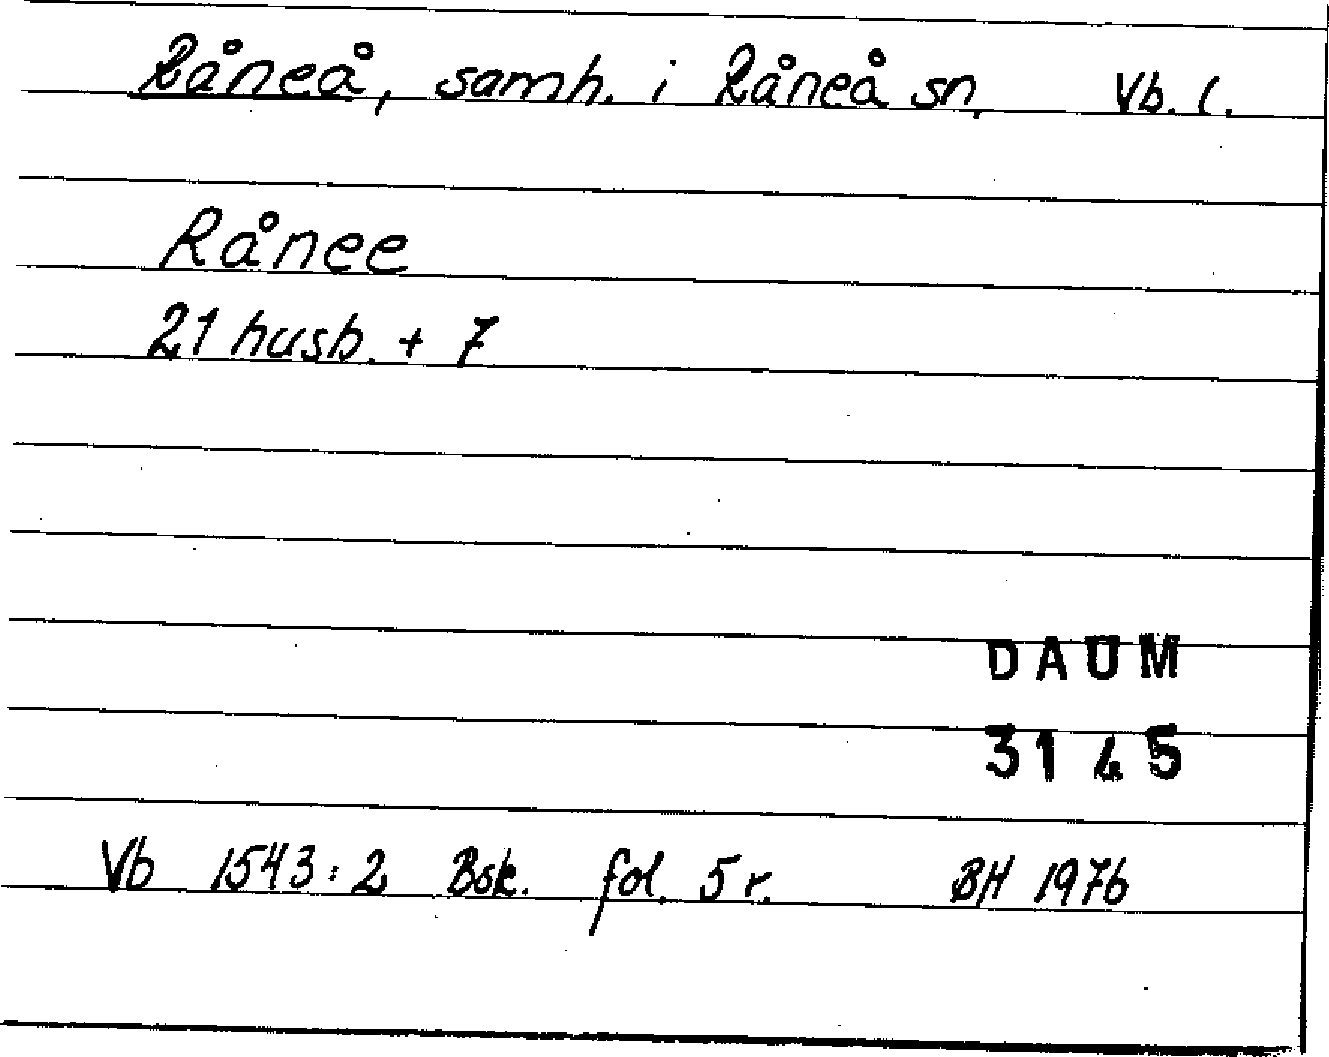 Råneå, samh. i Råneå sn, Vb. l.
Rånee
21 husb. + 7
DAUM
3145
Vb 1543:2 Bsk. fol. 5r. BH 1976